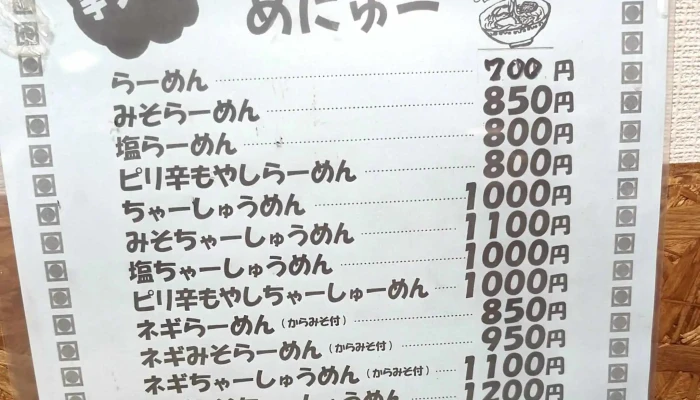 めにゅー
らーめん 700円
みそらーめん 850円
塩らーめん 800円
ピリ辛もやしらーめん 800円
ちゃーしゅうめん 1000円
みそちゃーしゅうめん 1100円
塩ちゃーしゅうめん 1000円
ピリ辛もやしちゃーしゅーめん 1000円
ネギらーめん(からみそ付) 850円
ネギみそらーめん(からみそ付) 950円
ネギちゃーしゅうめん(からみそ付) 1100円
1200円